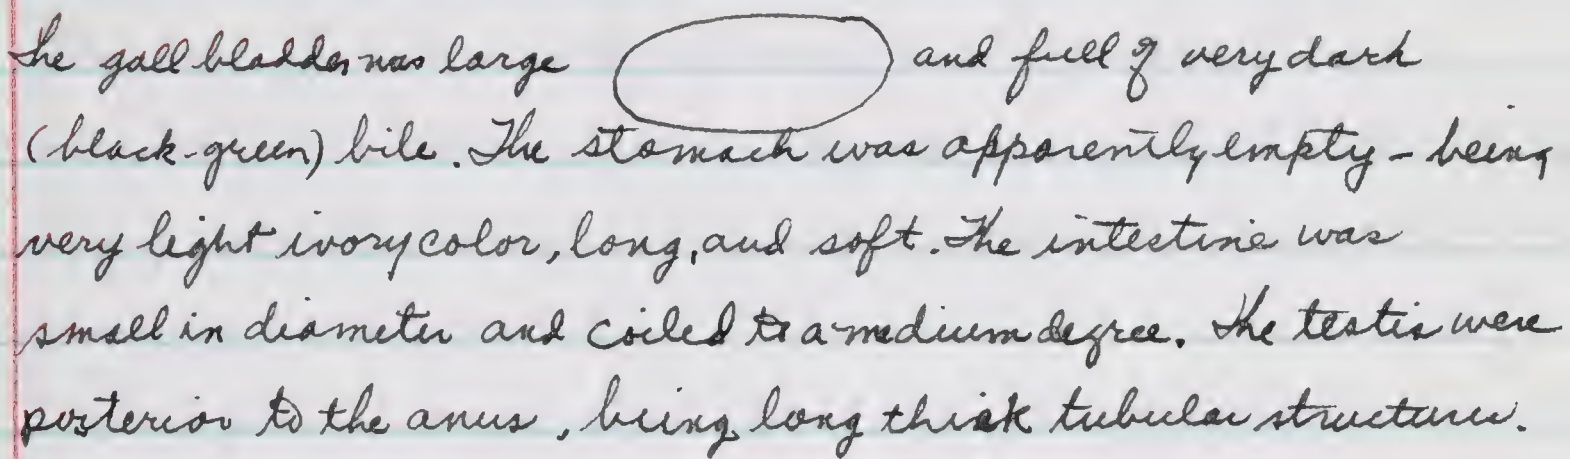 The gall bladder was large and full of very dark
(black-green) bile. The stomach was apparently empty - being
very light ivory color, long, and soft. The intestine was
small in diameter and coiled to a medium degree. The testis were
posterior to the anus, being long thick tubular structures.